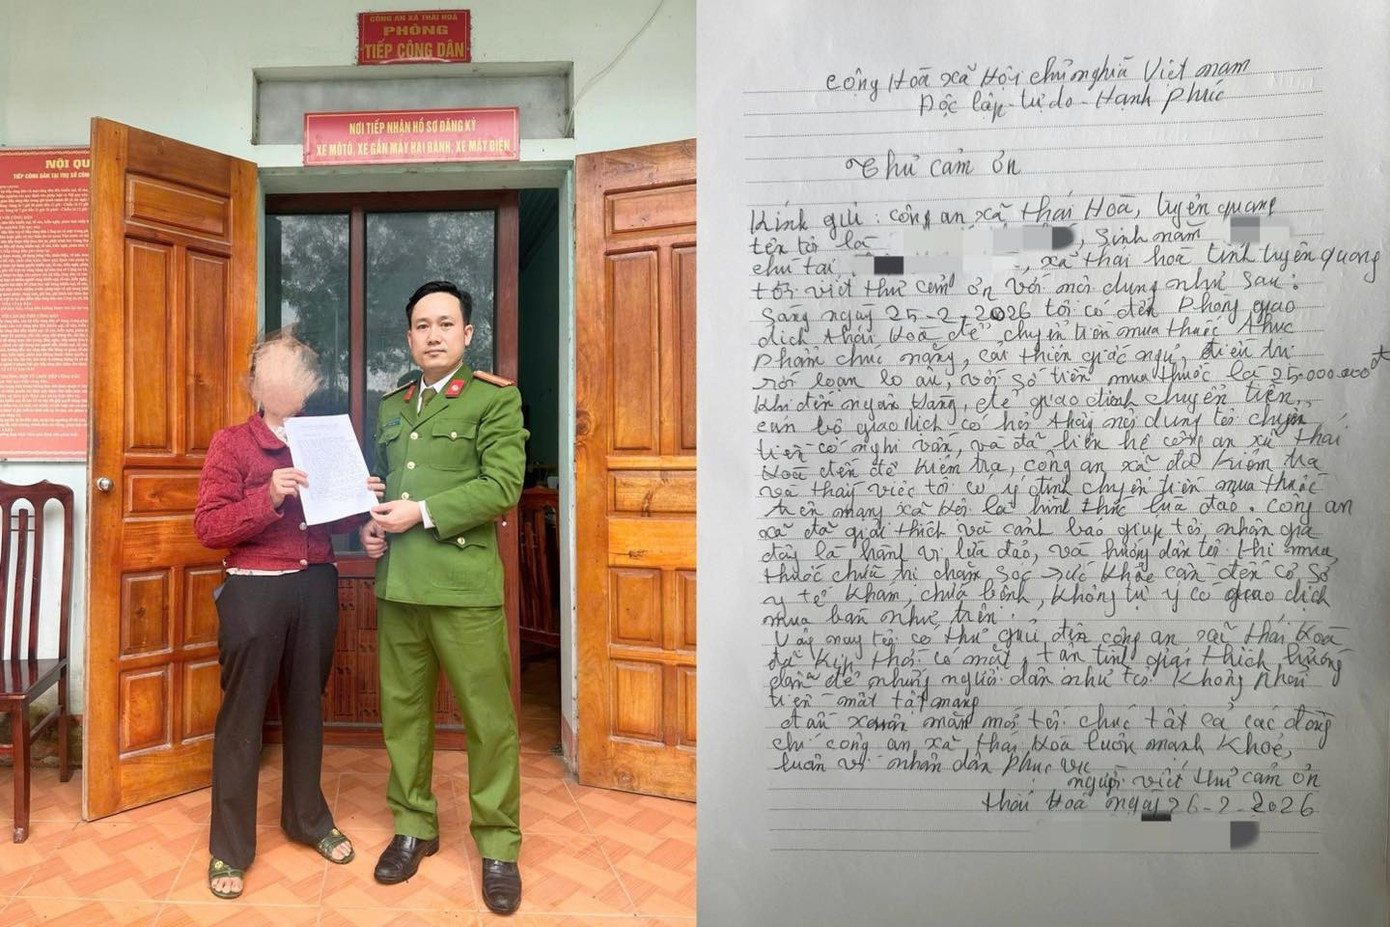 CÔNG AN XÃ THÁI HOÀ
PHÒNG
TIẾP CÔNG DÂN
NƠI TIẾP NHẬN HỒ SƠ ĐĂNG KÝ
XE MÔTÔ, XE GẮN MÁY HAI BÁNH, XE MÁY ĐIỆN
NỘI QU
TIẾP CÔNG DÂN TẠI TRỤ SỞ CÔN
Cộng Hoà xã Hội chủ nghĩa Việt nam
Độc lập - tự do - Hạnh phúc
Thư cảm ơn
Kính gửi : công an xã thái Hoà, tuyên quang
tên tôi là , Sinh năm
chú tại , xã thái hoà tỉnh tuyên quang
tôi viết thư cảm ơn với nội dung như sau :
Sáng ngày 25-2-2026 tôi có đến phòng giao
dịch thái Hoà để chuyển tiền mua thuốc thực
phẩm chức năng, cải thiện giấc ngủ, điều trị
rối loạn lo âu, với số tiền mua thuốc là 25.000.000đ
khi đến ngân hàng, để giao dịch chuyển tiền,
cán bộ giao dịch có hỏi thấy nội dung tôi chuyển
tiền có nghi vấn, và đã liên hệ công an xã thái
Hoà đến để kiểm tra, công an xã đã kiểm tra
và thấy việc tôi có ý định chuyển tiền mua thuốc
trên mạng xã hội là hình thức lừa đảo. công an
xã đã giải thích và cảnh báo giúp tôi nhận
đây là hành vi lừa đảo, và hướng dẫn tôi khi mua
thuốc chữa trị chăm sóc sức khoẻ cần đến cơ sở
y tế khám, chữa bệnh, không tự ý có giao dịch
mua bán như trên.
Vậy nay tôi có thư gửi đến công an xã thái Hoà
đã kịp thời có mặt, tận tình giải thích hướng
dẫn để những người dân như tôi không phải
tiền mất tật mang
đầu xuân năm mới tôi chúc tất cả các đồng
chí công an xã thái Hoà luôn mạnh khoẻ,
luôn vì nhân dân phục vụ
người viết thư cảm ơn
thái Hoà ngày 26-2-2026